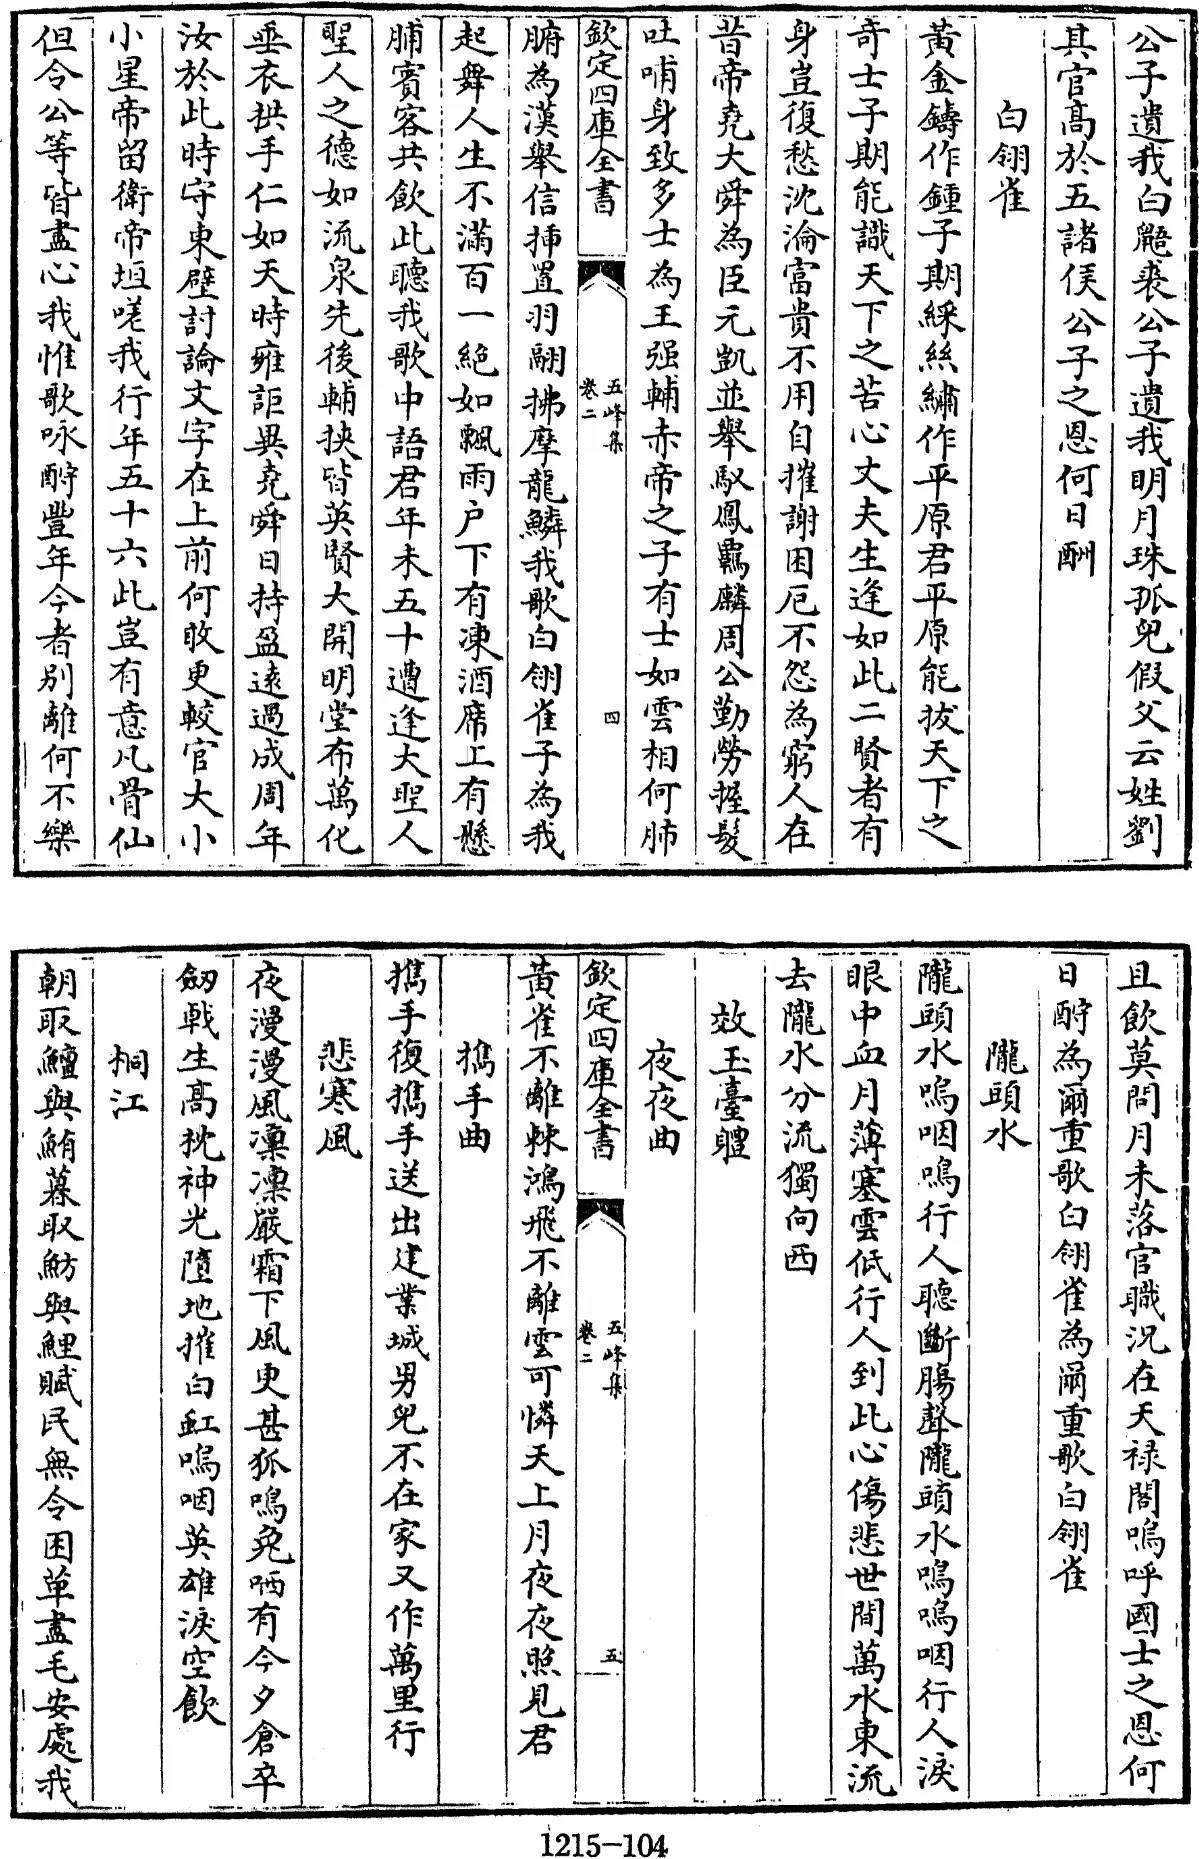 公子遺我白鼯裘公子遺我明月珠孤兒假父云姓劉
其官高於五諸侯公子之恩何日酬
白翎雀
黃金鑄作鍾子期綵絲繡作平原君平原能拔天下之
奇士子期能識天下之苦心丈夫生逢如此二賢者有
身豈復愁沈淪富貴不用自摧謝困厄不怨為窮人在
昔帝堯大舜為臣元凱並舉馭鳳羈麟周公勤勞握髮
吐哺身致多士為王强輔赤帝之子有士如雲相何肺
欽定四庫全書
五峰集
卷二
四
腑為漢舉信揷置羽翮拂摩龍鱗我歌白翎雀子為我
起舞人生不滿百一絶如飄雨户下有凍酒席上有懸
脯賓客共飲此聽我歌中語君年未五十遭逢大聖人
聖人之德如流泉先後輔挾皆英賢大開明堂布萬化
垂衣拱手仁如天時雍詎異堯舜日持盈遠過成周年
汝於此時守東壁討論文字在上前何敢更較官大小
小星帝留衛帝垣嗟我行年五十六此豈有意凡骨仙
但令公等皆盡心我惟歌咏酧豐年今者别離何不樂
且飲莫問月未落官職况在天禄閣嗚呼國士之恩何
日酧為爾重歌白翎雀為爾重歌白翎雀
隴頭水
隴頭水嗚咽鳴行人聽斷腸聲隴頭水鳴嗚咽行人淚
眼中血月薄塞雲低行人到此心傷悲世間萬水東流
去隴水分流獨向西
效玉臺體
夜夜曲
欽定四庫全書
五峰集
卷二
五
黃雀不離棘鴻飛不離雲可憐天上月夜夜照見君
擕手曲
擕手復擕手送出建業城男兒不在家又作萬里行
悲寒風
夜漫漫風凜凜嚴霜下風更甚狐鳴兔哂有今夕倉卒
劒戟生高枕神光墮地摧白虹嗚咽英雄淚空飲
桐江
朝取鱣與鮪暮取魴與鯉賦民無令困草盡毛安處我
1215-104